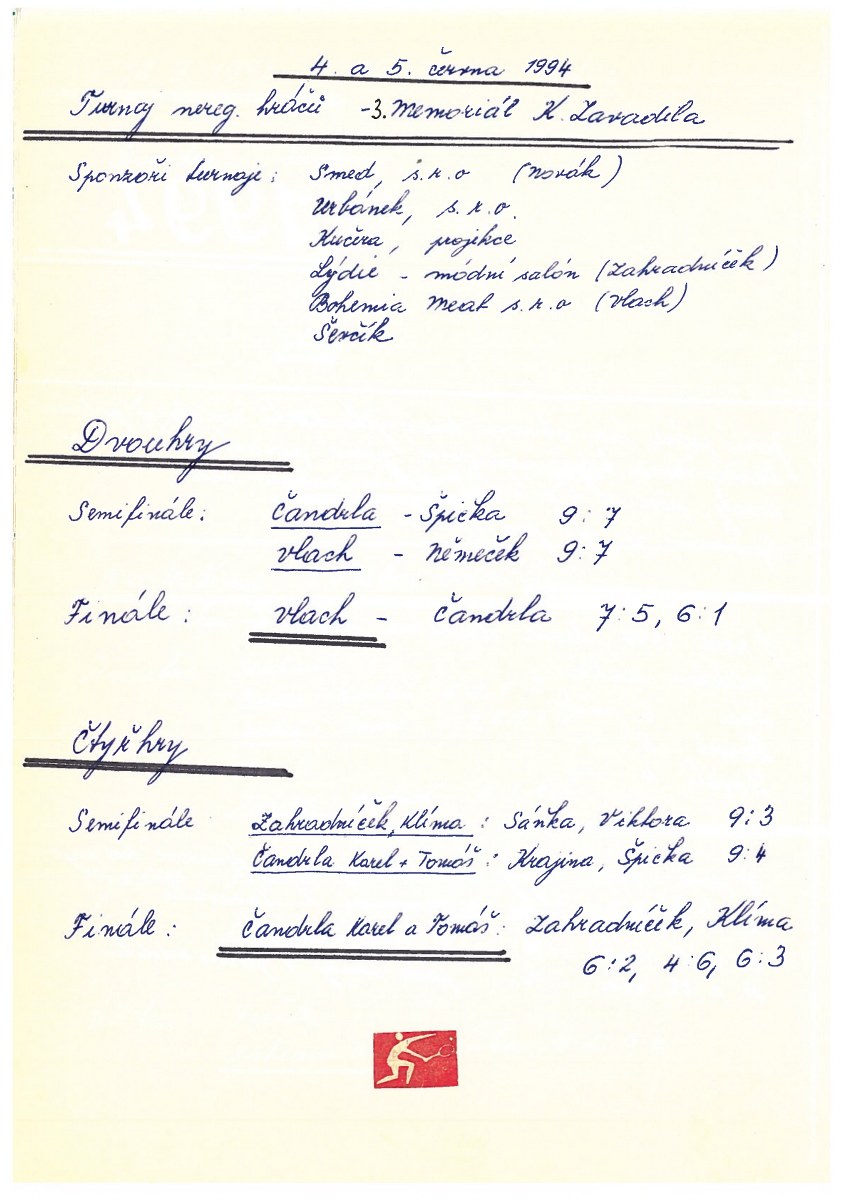 4. a 5. června 1994
Turnaj nereg. hráčů -3. Memoriál K. Zavadila
Sponzoři turnaje: Smed, s.r.o (Novák)
Urbánek, s.r.o.
Kučera, projekce
Lýdie - módní salón (Zahradníček)
Bohemia Meat s.r.o (Vlach)
Ševčík
Dvouhry
Semifinále: Čandrla - Špička 9:7
Vlach - Němeček 9:7
Finále: Vlach - Čandrla 7:5, 6:1
Čtyřhry
Semifinále Zahradníček, Klíma : Sáňka, Viktora 9:3
Čandrla Karel + Tomáš : Krajina, Špička 9:4
Finále: Čandrla Karel a Tomáš : Zahradníček, Klíma
6:2, 4:6, 6:3